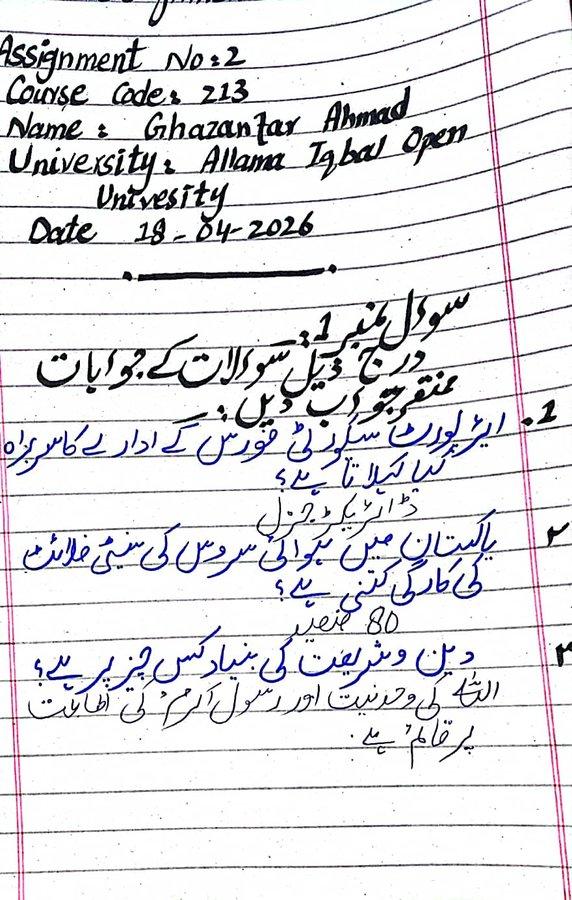 Assignment No: 2
Course Code: 213
Name : Ghazanfar Ahmad
University: Allama Iqbal Open
Univesity
Date 18-04-2026
سوال نمبر 1:
درج ذیل سوالات کے جوابات
مختصر جواب دیں:
1. ایئرپورٹ سکیورٹی فورس کے ادارے کا سربراہ
کیا کہلاتا ہے؟
ڈائریکٹر جنرل
۲ پاکستان میں ہوائی سروس کی سیٹی فلائٹ
کی کارگی کتنی ہے؟
80 فیصد
۳ دین و شریعت کی بنیاد کس چیز پر ہے؟
اللہ کی وحدنیت اور رسول اکرمؐ کی اطاعت
پر قائم ہے.